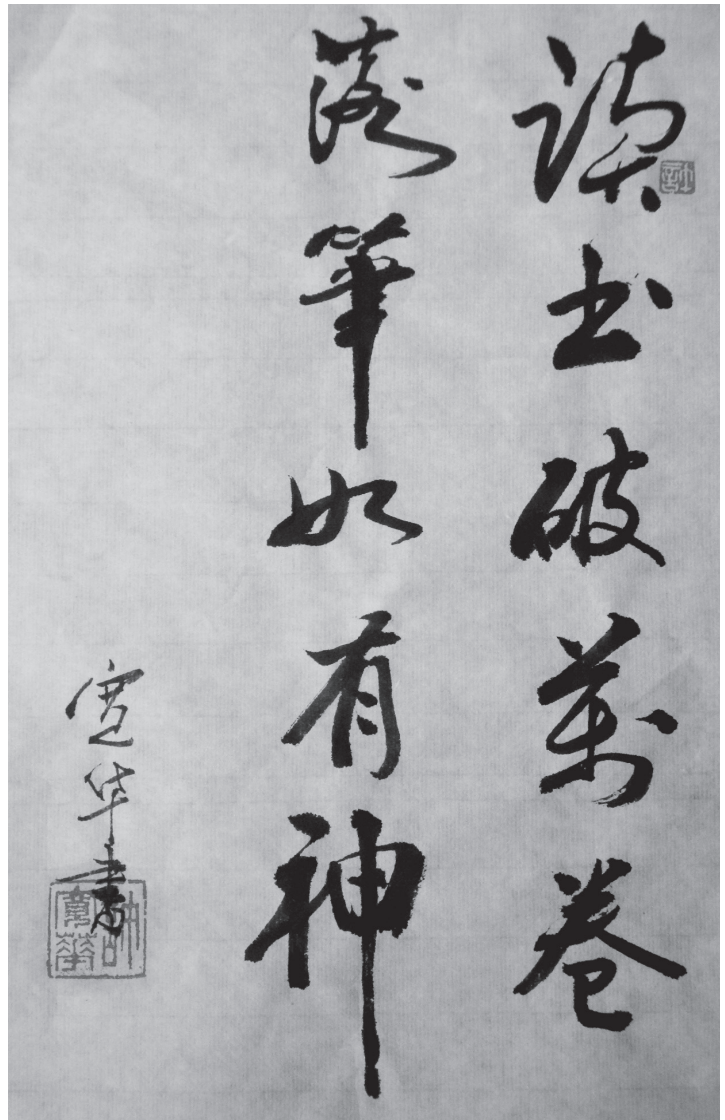 读书破萬卷
落筆如有神
宣华書